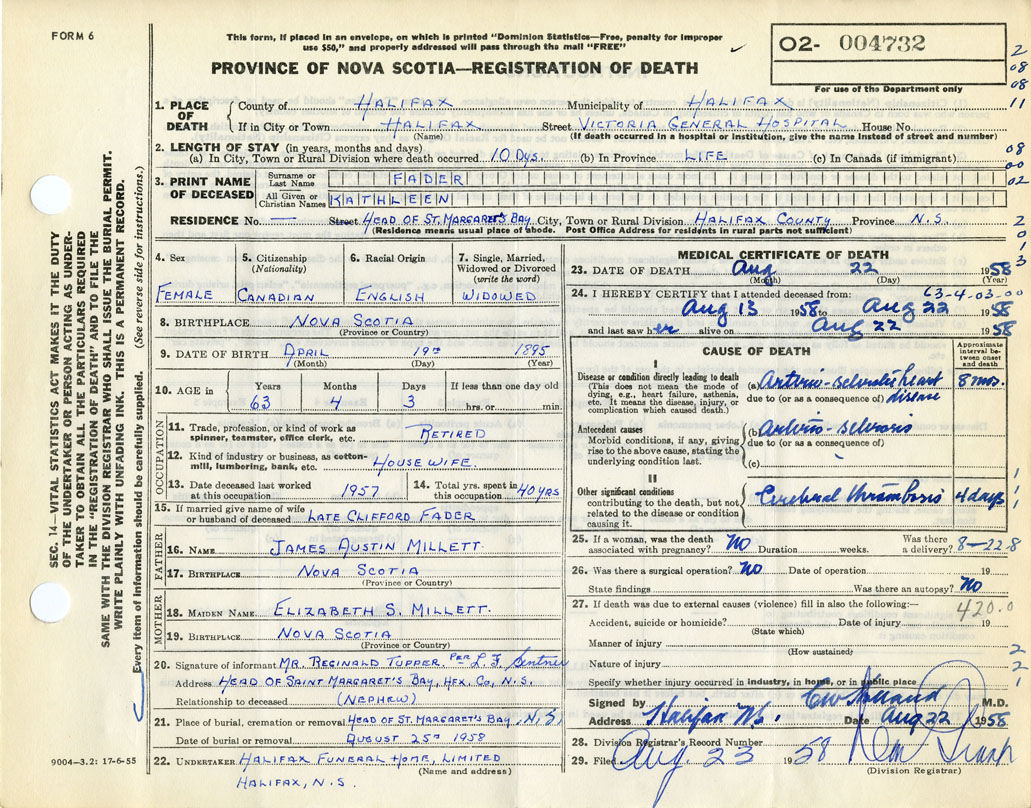 FORM 6
This form, if placed in an envelope, on which is printed "Dominion Statistics—Free, penalty for improper
use $50," and properly addressed will pass through the mail "FREE"
PROVINCE OF NOVA SCOTIA—REGISTRATION OF DEATH
O2- 004732
For use of the Department only
2
08
08
11
08
00
02
2
0
1
3
SEC. 14—VITAL STATISTICS ACT MAKES IT THE DUTY
OF THE UNDERTAKER OR PERSON ACTING AS UNDER-
TAKER TO OBTAIN ALL THE PARTICULARS REQUIRED
IN THE "REGISTRATION OF DEATH" AND TO FILE THE
SAME WITH THE DIVISION REGISTRAR WHO SHALL ISSUE THE BURIAL PERMIT.
WRITE PLAINLY WITH UNFADING INK. THIS IS A PERMANENT RECORD.
Every item of information should be carefully supplied. (See reverse side for instructions.)
1. PLACE OF DEATH County of HALIFAX Municipality of HALIFAX
If in City or Town HALIFAX Street VICTORIA GENERAL HOSPITAL House No.
(Name) (If death occurred in a hospital or institution, give the name instead of street and number)
2. LENGTH OF STAY (in years, months and days)
(a) In City, Town or Rural Division where death occurred 10 DYS. (b) In Province LIFE (c) In Canada (if immigrant)
3. PRINT NAME OF DECEASED Surname or Last Name FADER
All Given or Christian Names KATHLEEN
RESIDENCE No. — Street HEAD OF ST. MARGARET'S BAY City, Town or Rural Division HALIFAX COUNTY Province N.S.
(Residence means usual place of abode. Post Office Address for residents in rural parts not sufficient)
4. Sex FEMALE
5. Citizenship (Nationality) CANADIAN
6. Racial Origin ENGLISH
7. Single, Married, Widowed or Divorced (write the word) WIDOWED
8. BIRTHPLACE NOVA SCOTIA
(Province or Country)
9. DATE OF BIRTH APRIL 19TH 1895
(Month) (Day) (Year)
10. AGE in Years 63 Months 4 Days 3 If less than one day old hrs. or min.
OCCUPATION
11. Trade, profession, or kind of work as spinner, teamster, office clerk, etc. RETIRED
12. Kind of industry or business, as cotton-mill, lumbering, bank, etc. HOUSE WIFE.
13. Date deceased last worked at this occupation 1957 14. Total yrs. spent in this occupation 40 YRS
15. If married give name of wife or husband of deceased LATE CLIFFORD FADER
FATHER
16. NAME JAMES AUSTIN MILLETT
17. BIRTHPLACE NOVA SCOTIA
(Province or Country)
MOTHER
18. MAIDEN NAME ELIZABETH S. MILLETT.
19. BIRTHPLACE NOVA SCOTIA
(Province or Country)
20. Signature of informant MR. REGINALD TUPPER. PER L. F. Sentner
Address HEAD OF SAINT MARGARET'S BAY, HFX. CO, N.S.
Relationship to deceased (NEPHEW)
21. Place of burial, cremation or removal HEAD OF ST. MARGARET'S BAY, N.S.
Date of burial or removal AUGUST 25TH 1958
22. UNDERTAKER HALIFAX FUNERAL HOME, LIMITED
(Name and address)
HALIFAX, N.S.
9004—3.2: 17-6-55
MEDICAL CERTIFICATE OF DEATH
23. DATE OF DEATH Aug 22 1958
(Month) (Day) (Year)
63-4-03-00
24. I HEREBY CERTIFY that I attended deceased from:
Aug 13 1958 to Aug 22 1958
and last saw her alive on Aug 22 1958
CAUSE OF DEATH
Approximate interval between onset and death
I
Disease or condition directly leading to death
(This does not mean the mode of dying, e.g., heart failure, asthenia, etc. It means the disease, injury, or complication which caused death.)
(a) Arterio-Sclerotic heart disease 8 mos.
due to (or as a consequence of)
Antecedent causes
Morbid conditions, if any, giving rise to the above cause, stating the underlying condition last.
(b) Arterio-Sclerosis
due to (or as a consequence of)
(c)
II
Other significant conditions
contributing to the death, but not related to the disease or condition causing it.
Cerebral thrombosis 4 days
1
1
1
25. If a woman, was the death associated with pregnancy? NO Duration weeks. Was there a delivery? 8-22-8
26. Was there a surgical operation? NO Date of operation 19
State findings Was there an autopsy? NO
27. If death was due to external causes (violence) fill in also the following:—
420.0
Accident, suicide or homicide? Date of injury 19
(State which)
Manner of injury
(How sustained)
Nature of injury
2
2
1
Specify whether injury occurred in industry, in home, or in public place
Signed by CW Holland M.D.
Address Halifax NS. Date Aug 22 1958
28. Division Registrar's Record Number
29. Filed Aug. 23 1958
(Division Registrar)